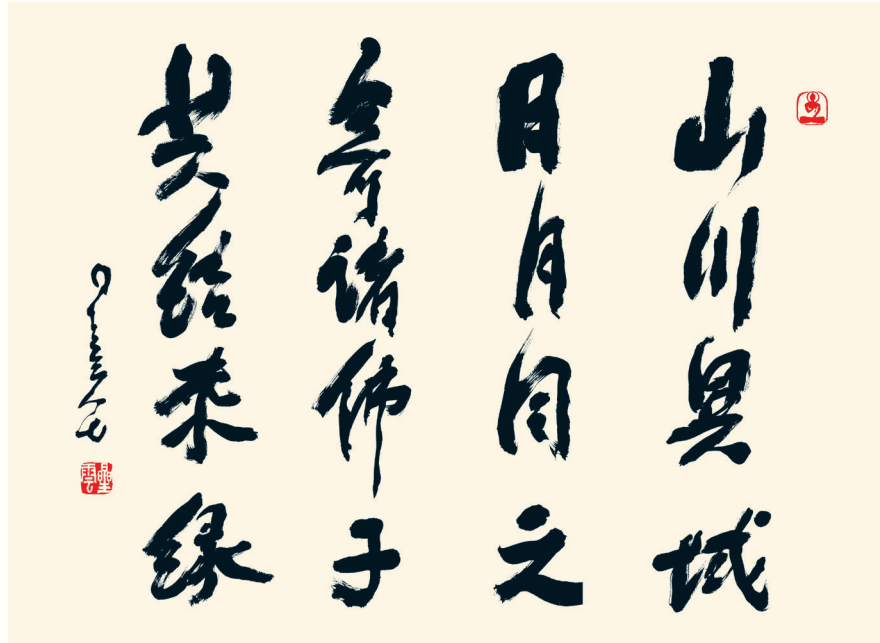 山川異域
日月同天
寄諸佛子
共結來緣
星雲